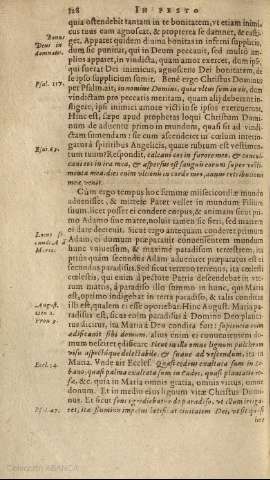 128 IN FESTO
quia ostendebit tantam in te bonitatem, vt etiam inimi-
cus tuus eam agnoscat, & propterea se damnet, & casti-
get. Apparet quidem diuina bonitas in inferni supplicio,
dum sic punitur, qui in Deum peccauit, sed multò am-
plius apparet, in vindicta, quam amor exercet, dum ipse,
qui fuerat Dei inimicus, agnoscens Dei bonitatem, de
se ipso supplicium sumit. Benè ergo Christus Dominus
per Psalm. ait; in nomine Domini, quia vltus sum in eos, dum
vindictam pro peccatis meritam, quam alij
ipsi inimici amore victi in se ipsos exercerent,
Hinc est, sæpe apud prophetas loqui Christum Domi-
num de aduentu primo in mundum, quasi sit ad vindi-
ctam sumendam: se cum ascendere in cœlum
gatoris spiritus Angelicis, quare rubrum est vestimen-
tum tuum? Respondit, calcaui eos in furore meo, & concul-
caui eos in ira mea, & aspersus est sanguis eorum super vesti-
menta mea: dies enim vltionis in corde meo, annus retributionis
meæ venit.
Cùm ergo tempus hoc summæ misericordiæ mundo
aduenisset, & mittere Pater vellet in mundum Filium
suum, licet posset ei condere corpus, & animam sicut pri-
mo Adamo sine matre, noluit tamen sic fieri, sed matrem
ei dare decreuit. Sicut ergo antequam conderet primum
Adam, ei domum præparauit conuenientem mundum
hunc vniuersum, & maximè paradisum terrestrem, ita
priùs quàm secundus Adam adueniret præparatus est ei
secundus paradisus. Sed sicut terreno terrenus, ita cælesti
cælestis, qui enim à pectore Patris descendebat in vte-
rum matris, à paradiso illo summo in hunc, qui Maria
est, optimo indigebat in terra paradiso, & talis condita
illi est, qualem ei esse oportebat. Hinc August. Maria pa-
radisus est, sicut enim paradisus à Domino Deo planta-
tus dicitur, ita Maria à Deo condita fuit: sapientia enim
ædificauit sibi domum, aliàs enim ei conuenientem do-
mum nesciret ædificare. Sicut in illo omne lignum pulchrum
visu aspectúque delectabile, & suaue ad vescendum, ita in
Maria. Vnde ait Eccles. Quasi cedrus exaltata sum in Li-
bano, quasi palma exaltata sum in Cades, quasi plantatio ro-
sæ, &c. quia in Maria omnis gratia, omnis virtus, omne
donum. Et in medio eius lignum vitæ Christus Domi-
nus. Et sicut fons egrediebatur de paradiso, vt eum irriga-
ret, ita fluminis impetus lætificat ciuitatem Dei, vt sit quasi
Bonus
Deus in
damnatis.
Psal. 117.
Esai. 63.
Eccl. 24.
Psal. 45.
Colección ABANCA